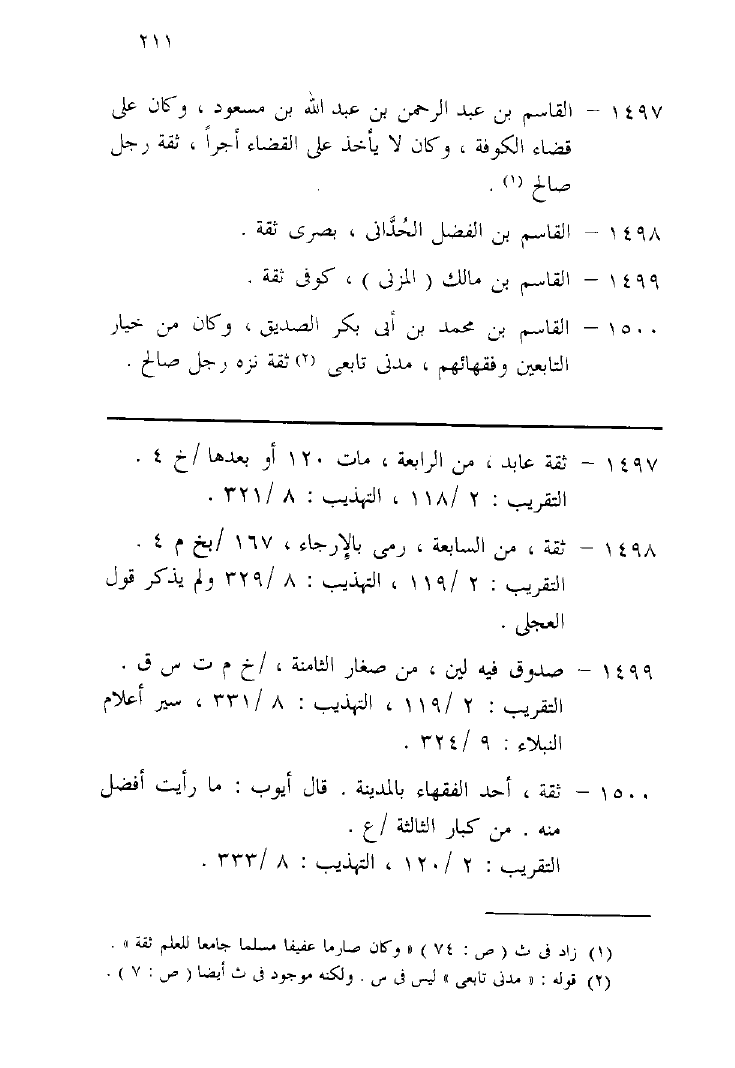 ٢١١
١٤٩٧ – القاسم بن عبد الرحمن بن عبد الله بن مسعود ، وكان على
قضاء الكوفة ، وكان لا يأخذ على القضاء أجراً ، ثقة رجل
صالح (١) .
١٤٩٨ – القاسم بن الفضل الحُدَّانى ، بصرى ثقة .
١٤٩٩ – القاسم بن مالك ( المزنى ) ، كوفى ثقة .
١٥٠٠ – القاسم بن محمد بن أبى بكر الصديق ، وكان من خيار
التابعين وفقهائهم ، مدنى تابعى (٢) ثقة نزه رجل صالح .
١٤٩٧ – ثقة عابد ، من الرابعة ، مات ١٢٠ أو بعدها /خ ٤ .
التقريب : ٢ /١١٨ ، التهذيب : ٨ /٣٢١ .
١٤٩٨ – ثقة ، من السابعة ، رمى بالإرجاء ، ١٦٧ /بخ م ٤ .
التقريب : ٢ /١١٩ ، التهذيب : ٨ /٣٢٩ ولم يذكر قول
العجلى .
١٤٩٩ – صدوق فيه لين ، من صغار الثامنة ، /خ م ت س ق .
التقريب : ٢ /١١٩ ، التهذيب : ٨ /٣٣١ ، سير أعلام
النبلاء : ٩ /٣٢٤ .
١٥٠٠ – ثقة ، أحد الفقهاء بالمدينة . قال أيوب : ما رأيت أفضل
منه . من كبار الثالثة /ع .
التقريب : ٢ /١٢٠ ، التهذيب : ٨ /٣٣٣ .
(١) زاد فى ث ( ص : ٧٤ ) « وكان صارما عفيفا مسلما جامعا للعلم ثقة » .
(٢) قوله : « مدنى تابعى » ليس فى س . ولكنه موجود فى ث أيضا ( ص : ٧ ) .